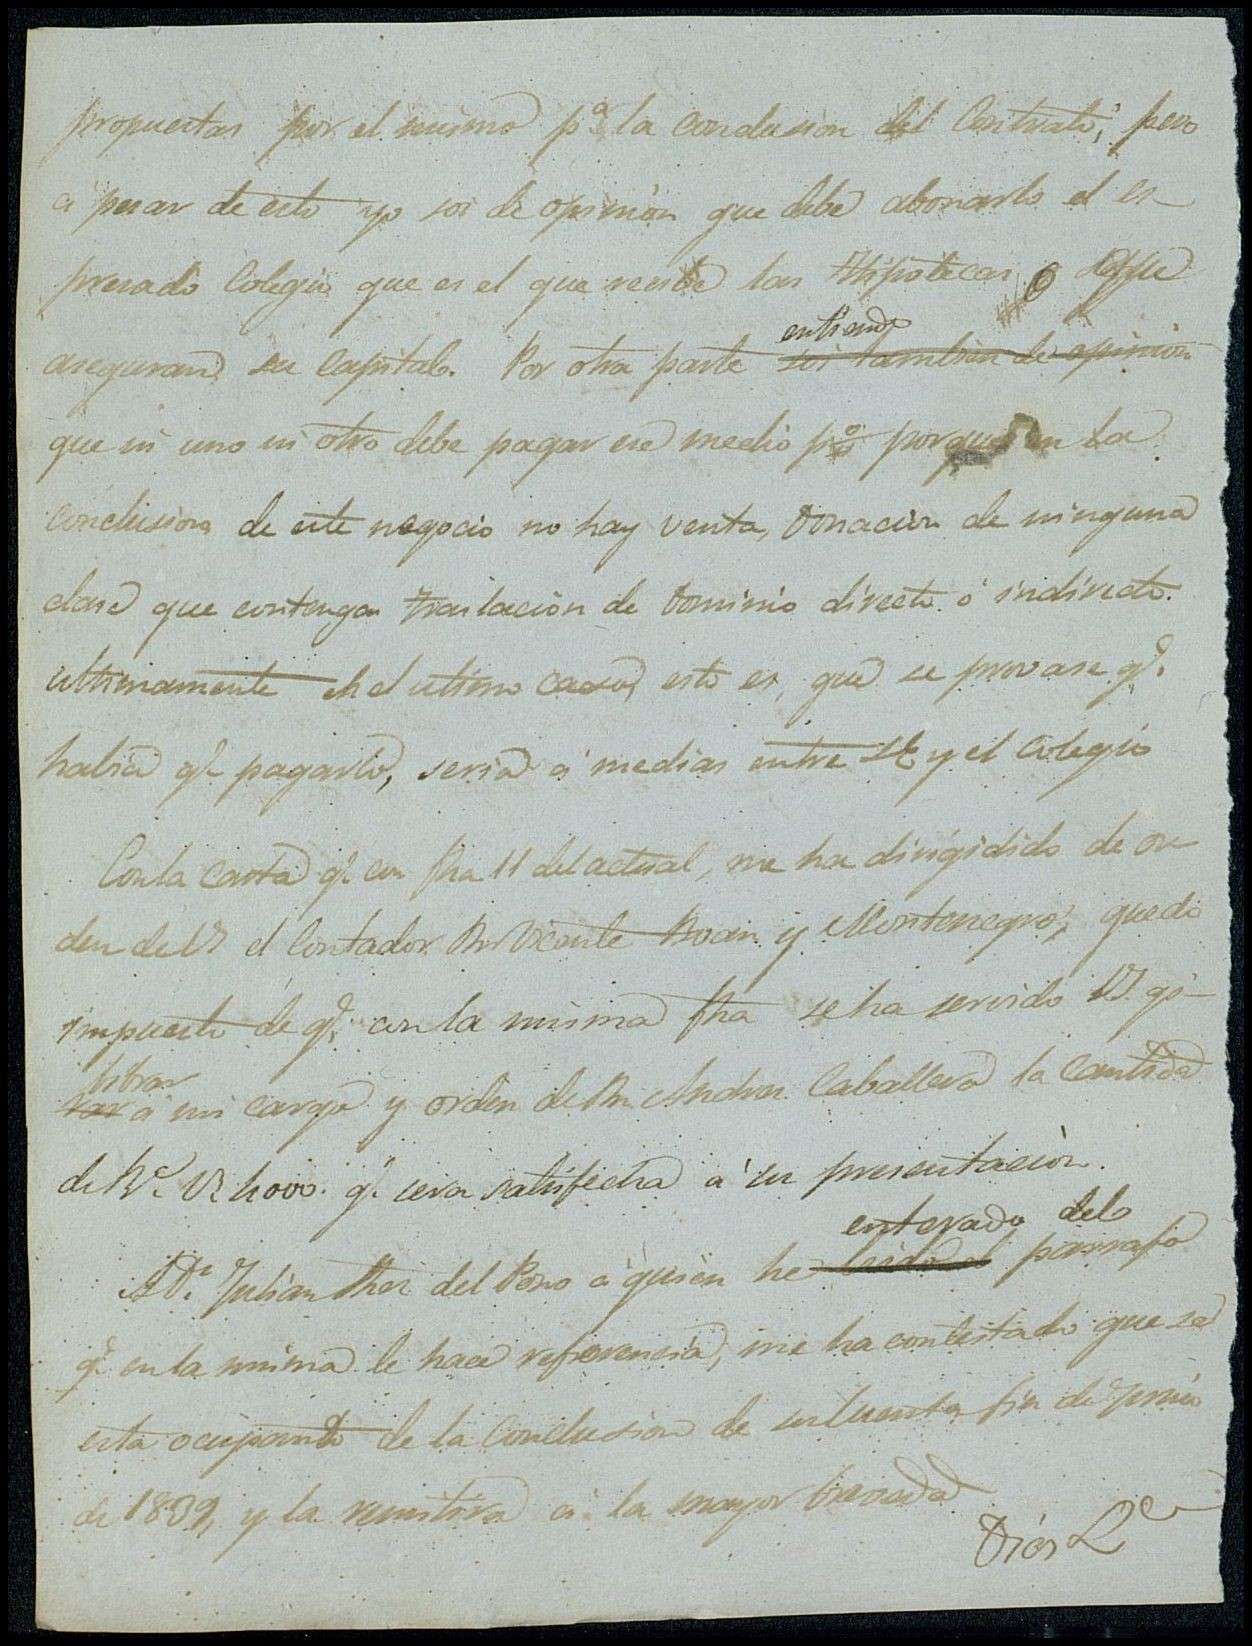 propuestas por el mismo pª la conclusion del Contrato; pero
á pesar de esto yo soi de opinión que debe abonarlo el es
presado Colegio que es el que recibe las Hipotecas ó
aseguran su capital. Por otra parte entiendo soi tambien de opinion
que ni uno ni otro debe pagar ese medio p% porque en la
conclusion de este negocio no hay venta, donacion de ninguna
clase que contenga traslacion de dominio directo ó indirecto.
ultimamente en el ultimo caso, esto es, que se provase qe.
habia qe pagarlo, seria á medias entre SE y el Colegio
Con la carta qe con fha 11 del actual, me ha dirigidido de or
den de VS el Contador Dn Vicente Boan y Montenegro, quedo
impuesto de qe. con la misma fha se ha servido VS. gi-
librar
rar á mi cargo y orden de Dn Andres Caballero la cantidad
de Rs. Vn 4000. qe sera satisfecha á su presentación.
enterado del
A Dn. Julian Fhez del Pozo á quien he leido el parrafo
qe en la misma le hace referencia, me ha contestado que se
esta ocupando de la conclusion de su cuenta fin de Junio
de 1839, y la remitira á la mayor brevedad
Dios &